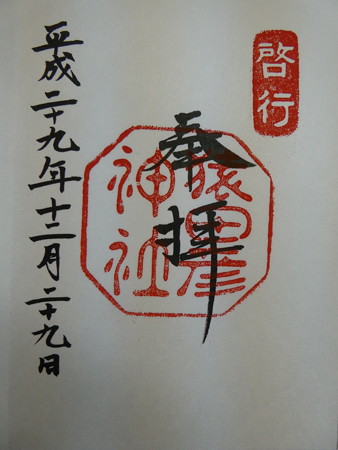 啓行
奉拝
猿田彦神社
平成二十九年十二月二十九日